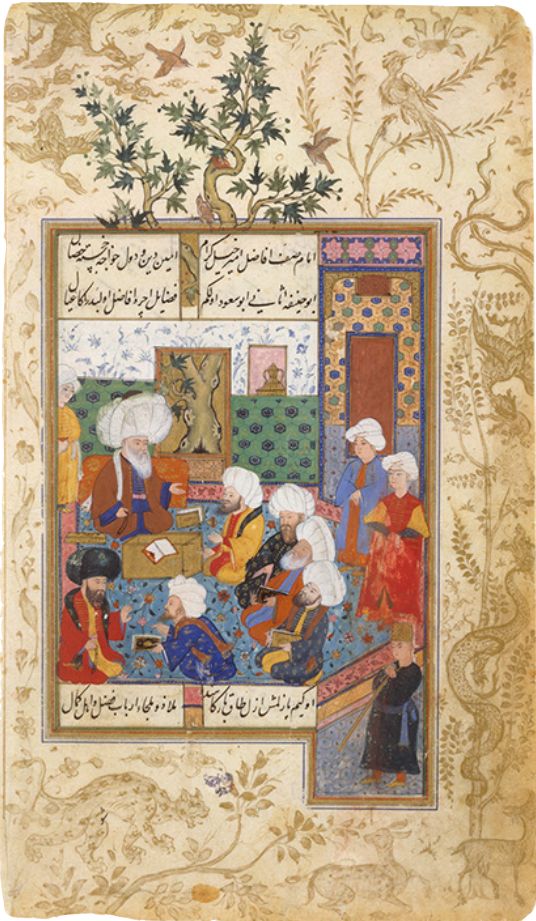 امام صف افاضل امیر خیل کرام
امین دین و دول خواجه خجسته خصال
ابو حنیفه ثانی ابو سعود اول کم
فضایل ایچره افاضل اولبدر اکا عیال
اوکیم یازلمش ازل طاق
ملاذ و ملجاء ارباب فضل و اهل کمال